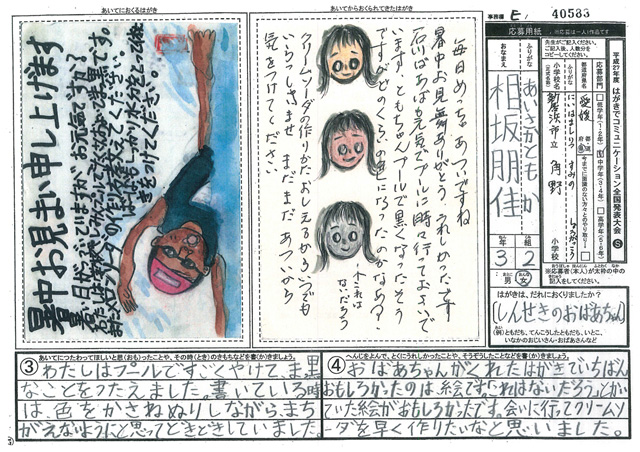 あいてにおくるはがき
暑中お見まい申し上げます
あいてからおくられてきたはがき
毎日めっちゃあついですね
暑中お見舞ありがとう うれしかったです
石川ばあばも元気でプールに時々行っておよいで
います。ともちゃんプールで黒くなったそう
ですがどのくらいの色になったのかなぁ?
これは
ないだろう
クリームソーダの作りかたおしえるからいつでも
いらっしゃいませ まだまだあついから
気をつけてください
事務欄 E, 40583
応募用紙 ※応募は一人1作品です
平成27年度 はがきでコミュニケーション全国発表大会 S
応募部門
低学年(1・2年)
中学年(3・4年)
高学年(5・6年)
都道府県名
愛媛
小学校名
にいはましりつ すみの しょうがっこう
新居浜市立 角野 小学校
ふりがな
あいさかともか
おなまえ
相坂朋佳
3年 2組
男 女
※応募者(本人)が太枠の中を記入してください。
はがきは、だれにおくりましたか?
(しんせきのおばあちゃん)
例)ともだち、てんこうしたともだち、いとこ、
いなかのおじいさん・おばあさんなど
③ あいてにつたわってほしいと思(おも)ったことや、その時(とき)のきもちなどを書(か)きましょう。
わたしはプールですごくやけて、ま黒
なことをつたえました。書いている時
は、色をかさねぬりしながら、まち
がえないようにと思ってどきどきしていました。
④ へんじをよんで、とくにうれしかったことや、そうぞうしたことなどを書(か)きましょう。
おばあちゃんがくれたはがきでいちばん
おもしろかったのは、絵です。「これはないだろう」とかい
ていた絵がおもしろかったです。会いに行ってクリームソ
ーダを早く作りたいなと思いました。